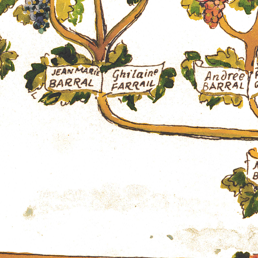 JEAN MARIE
BARRAL
Ghilaine
FARRAIL
Andrée
BARRAL